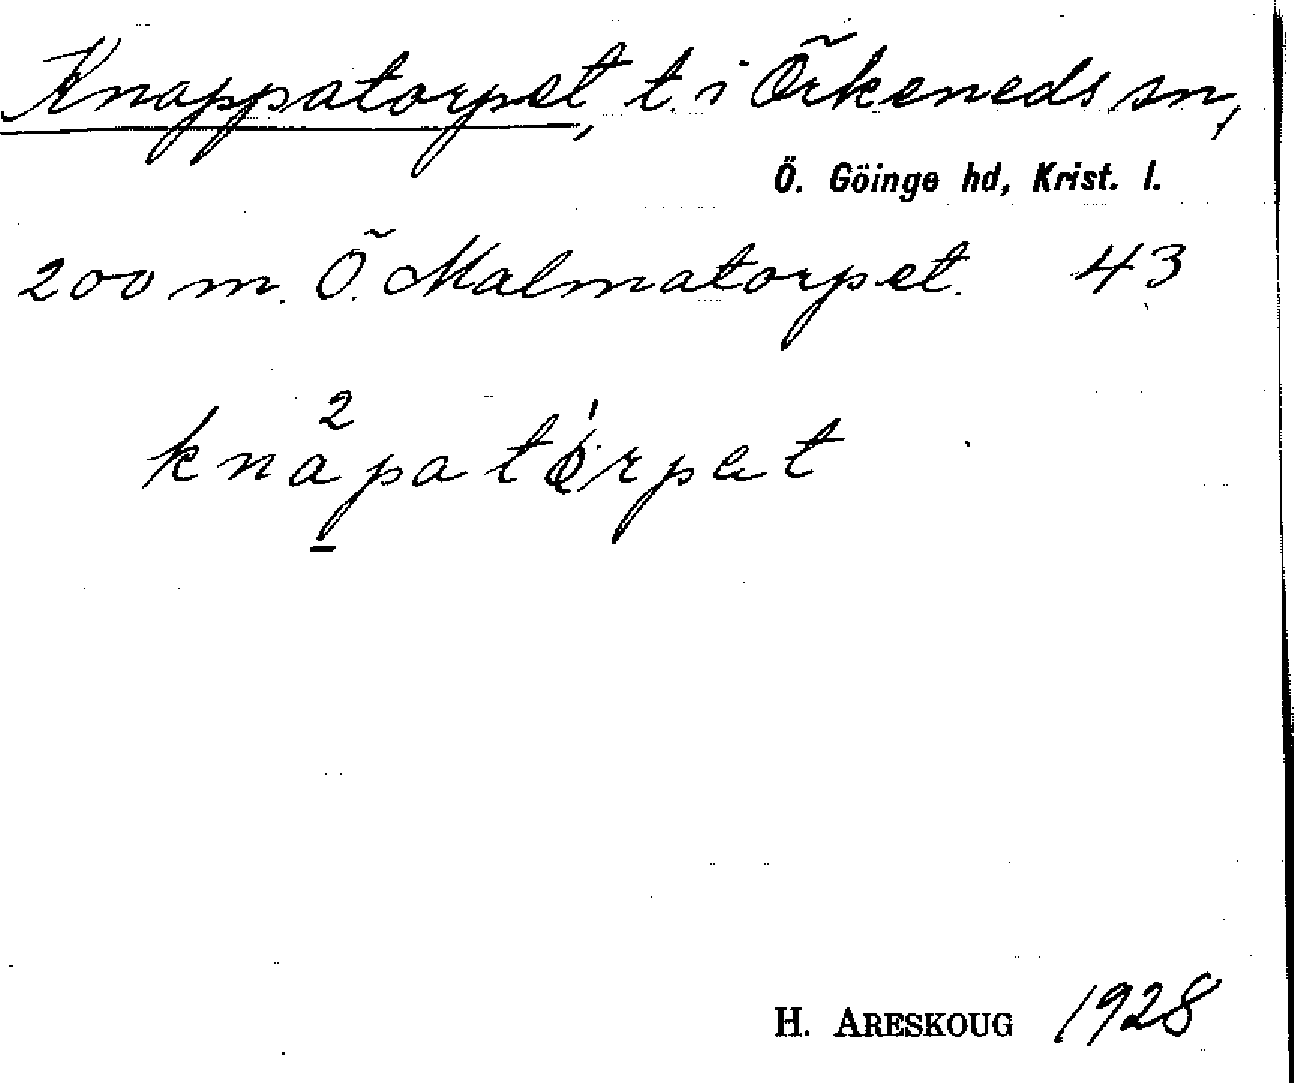 Knappatorpet, t. i Örkeneds sn,
Ö. Göinge hd, Krist. l.
200 m. Ö. Malmatorpet. 43
kna²patórpet
H. ARESKOUG 1928